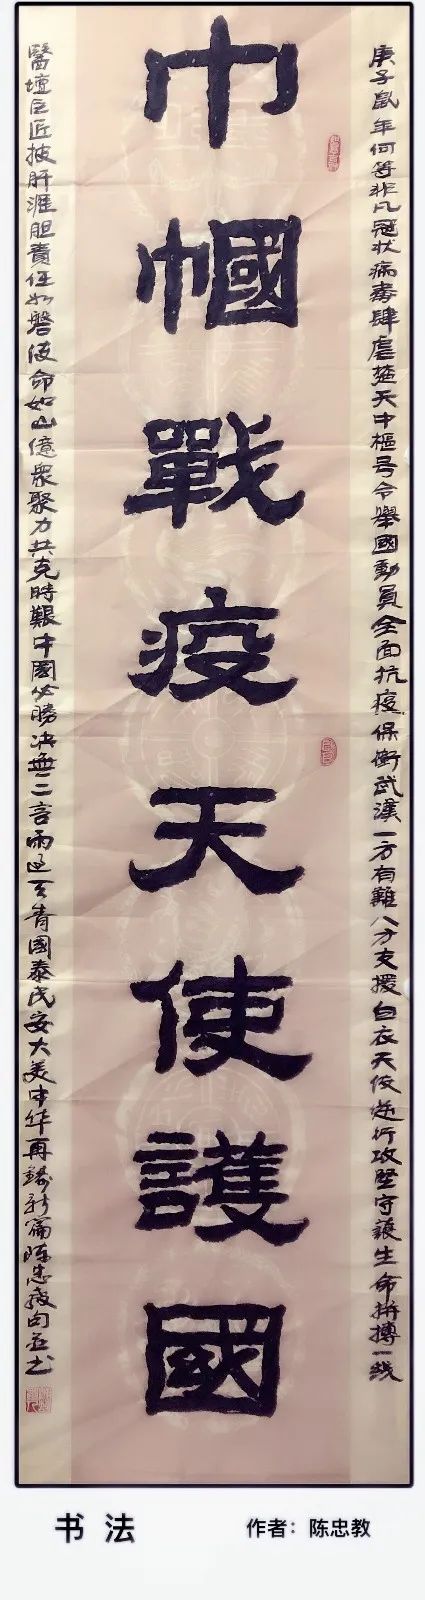 巾幗戰疫天使護國
庚子鼠年何等非凡冠状病毒肆虐楚天中樞号令舉國動員全面抗疫保衛武漢一方有難八方支援白衣天使逆行攻堅守護生命拼搏一线
醫壇巨匠披肝瀝胆責任如磐使命如山億衆聚力共克時艱中國必勝决無二言雨過天青國泰民安大美中华再鑄新篇陈忠教句並书
书法
作者：陈忠教